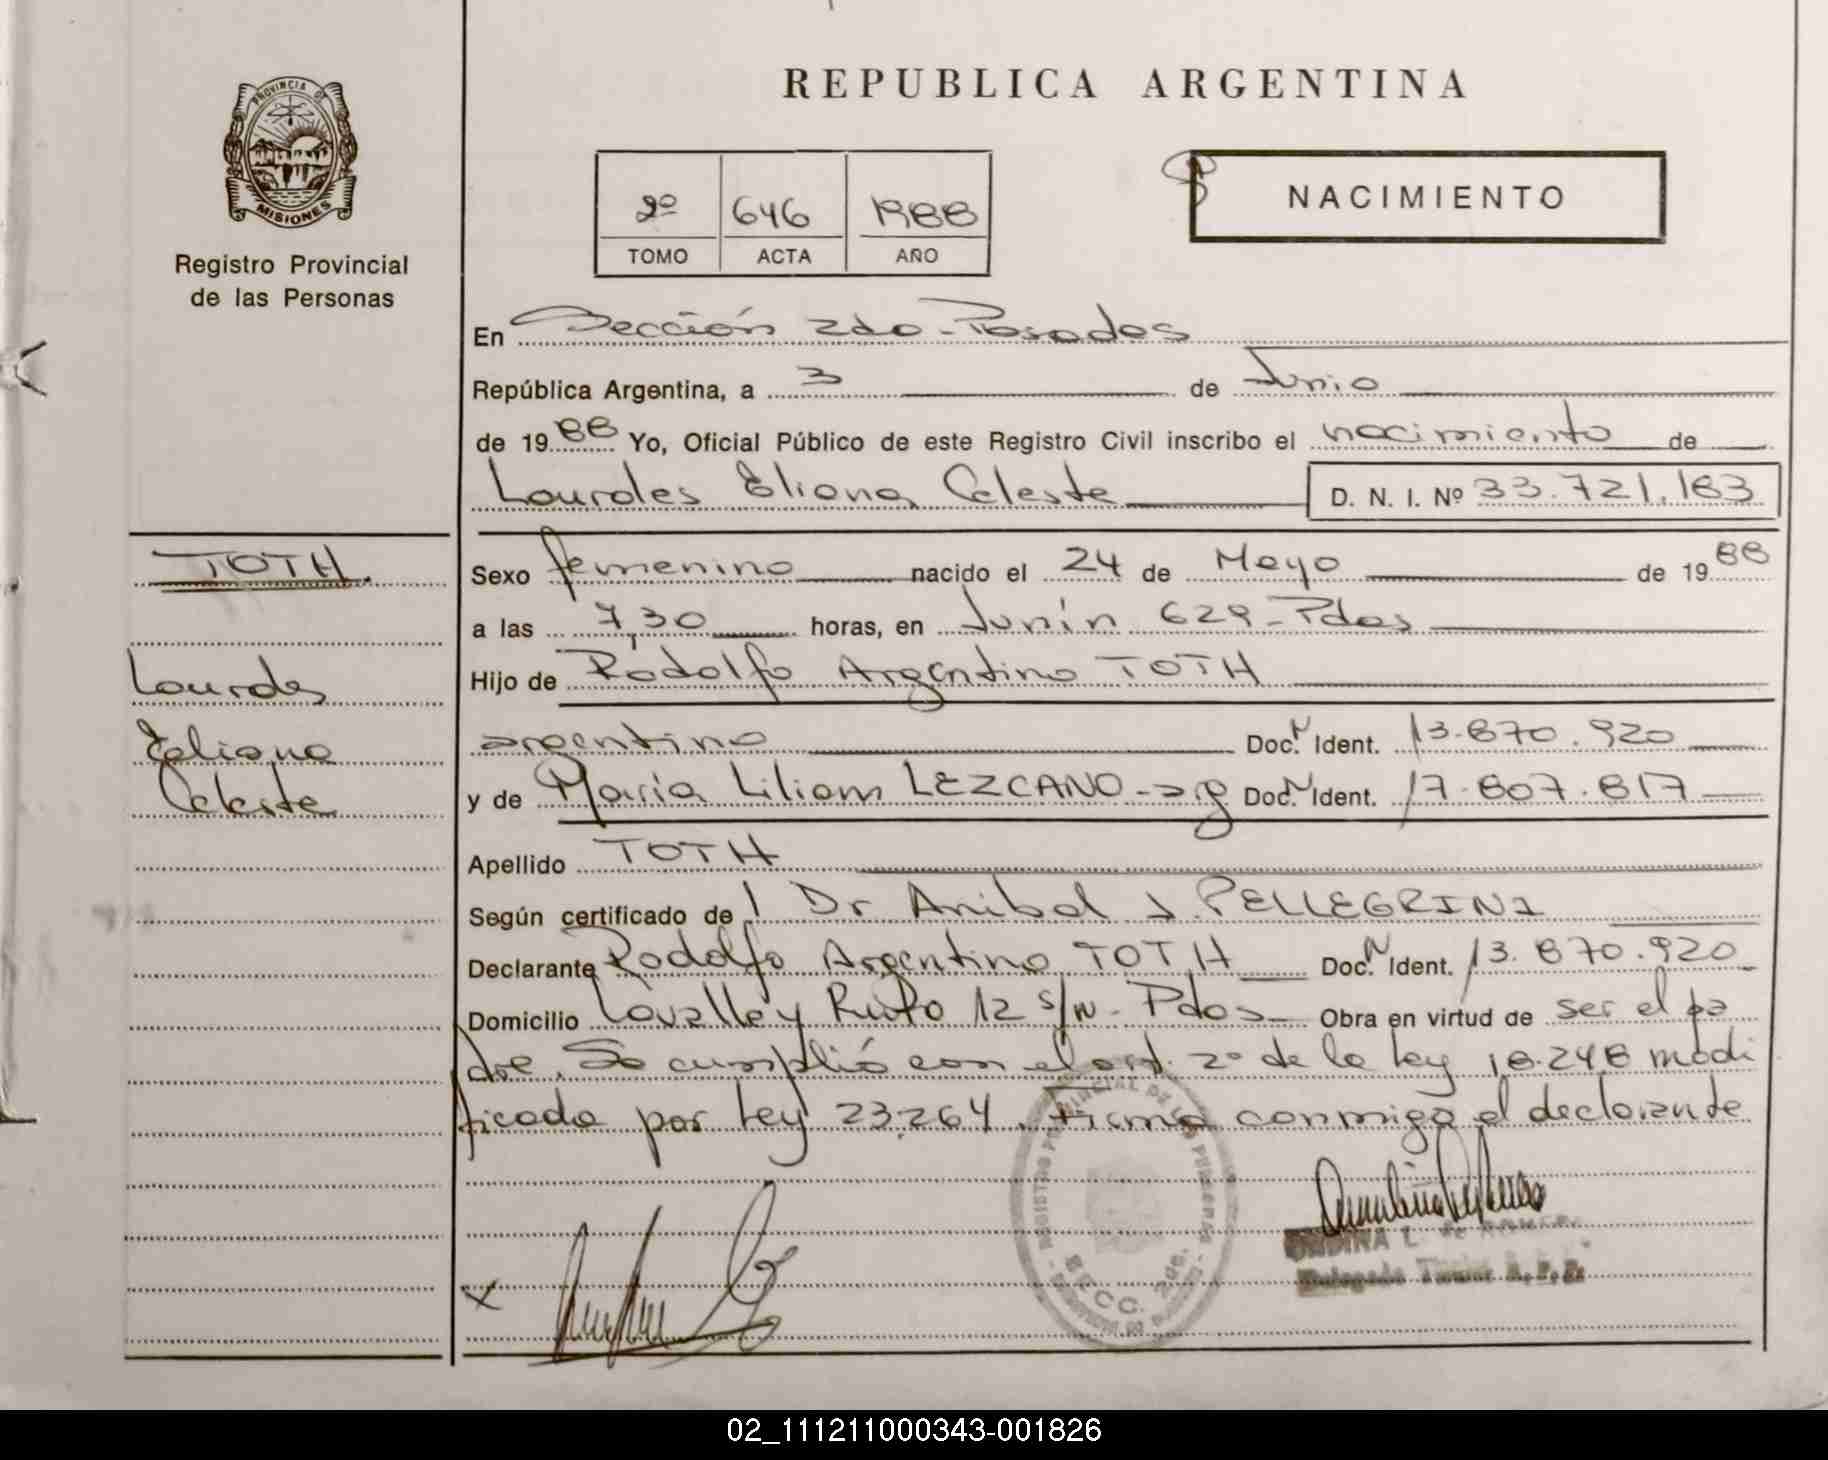 REPUBLICA ARGENTINA
PROVINCIA DE
MISIONES
Registro Provincial
de las Personas
2º 646 1988
TOMO ACTA AÑO
NACIMIENTO
En Sección 2da - Posadas
República Argentina, a 3 de Junio
de 1988 Yo, Oficial Público de este Registro Civil inscribo el nacimiento de
Lourdes Eliana Celeste D. N. I. Nº 33.721.183
TOTH.
Sexo femenino nacido el 24 de Mayo de 1988
a las 7,30 horas, en Junín 629 - Pdas
Lourdes
Hijo de Rodolfo Argentino TOTH
Eeliana
argentino Doc. N Ident. 13.870.920
Celeste
y de María Liliam LEZCANO - arg Doc. N Ident. 17.807.817
Apellido TOTH
Según certificado de l Dr Anibal J. PELLEGRINI
Declarante Rodolfo Argentino TOTH Doc. N Ident. 13.870.920
Domicilio Lavalle y Ruta 12 s/n - Pdas Obra en virtud de ser el pa
dre. Se cumplió con el art. 2º de la ley 18.248 modi
ficada por Ley 23.264. Firma conmigo el declarante
REGISTRO PROVINCIAL DE LAS PERSONAS
SECC. 2da.
X
02_111211000343-001826